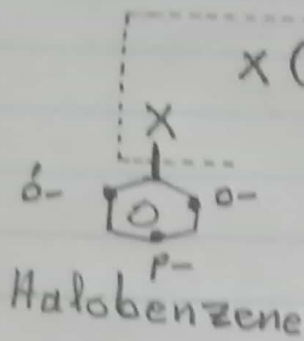 X (
X
ó- o-
p-
Halobenzene